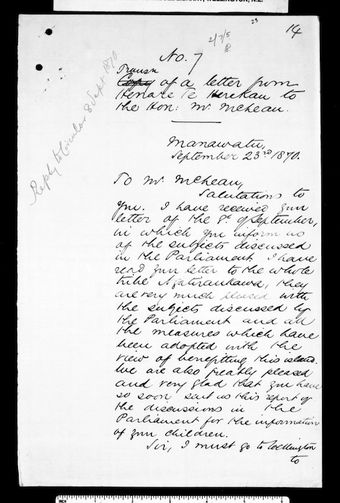 14
No. 7
Transn
Copy of a letter from
Henare Te Herekau to
the Hon: Mr McLean.
Reply to Circular 8 Sept 1870
Manawatu,
September 23rd 1870.
To Mr McLean,
Salutations to
you. I have received your
letter of the 8th of September,
in which you inform us
of the subjects discussed
in the Parliament. I have
read your letter to the whole
tribe Ngatiraukawa, they
are very much pleased with
the subjects discussed by
the Parliament and all
the measures which have
been adopted with the
view of benefitting this island.
We are also greatly pleased
and very glad that you have
so soon sent us this report of
the discussions in the
Parliament for the information
of your children.
Sir, I must go to Wellington
to